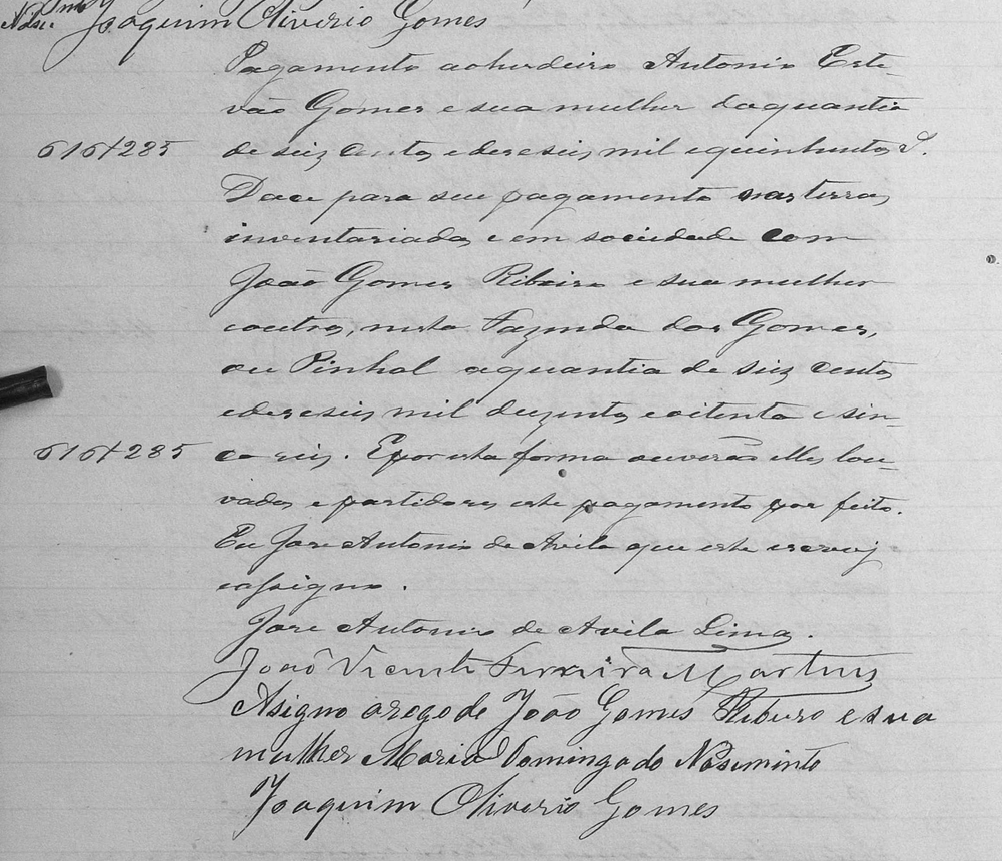 Nasc. Joaquim Oliverio Gomes
Pagamento aoherdeiro Antonio Este-
vão Gomes e sua mulher daquantia
616$285 de seiz centos edeseseis mil equinhentos
Dace para seu pagamento nas terras
inventariadas e em sociedade com
João Gomes Ribeiro e sua mulher
eoutros, nesta Fazenda dos Gomes,
ou Pinhal aquantia de seiz centos
edeseseis mil duzentos eoitenta e sin-
616$285 co reis. Epor esta forma ouverão elles lou-
vados e partidores este pagamento por feito.
Eu Jose Antonio de Avila que este escrevi
eassigno.
Jose Antonio de Avila Lima.
João Vicente Ferreira Martins
Asigno arogo de João Gomes Riburo e sua
mulher Maria Domingado Nasiminto
Joaquim Oliverio Gomes